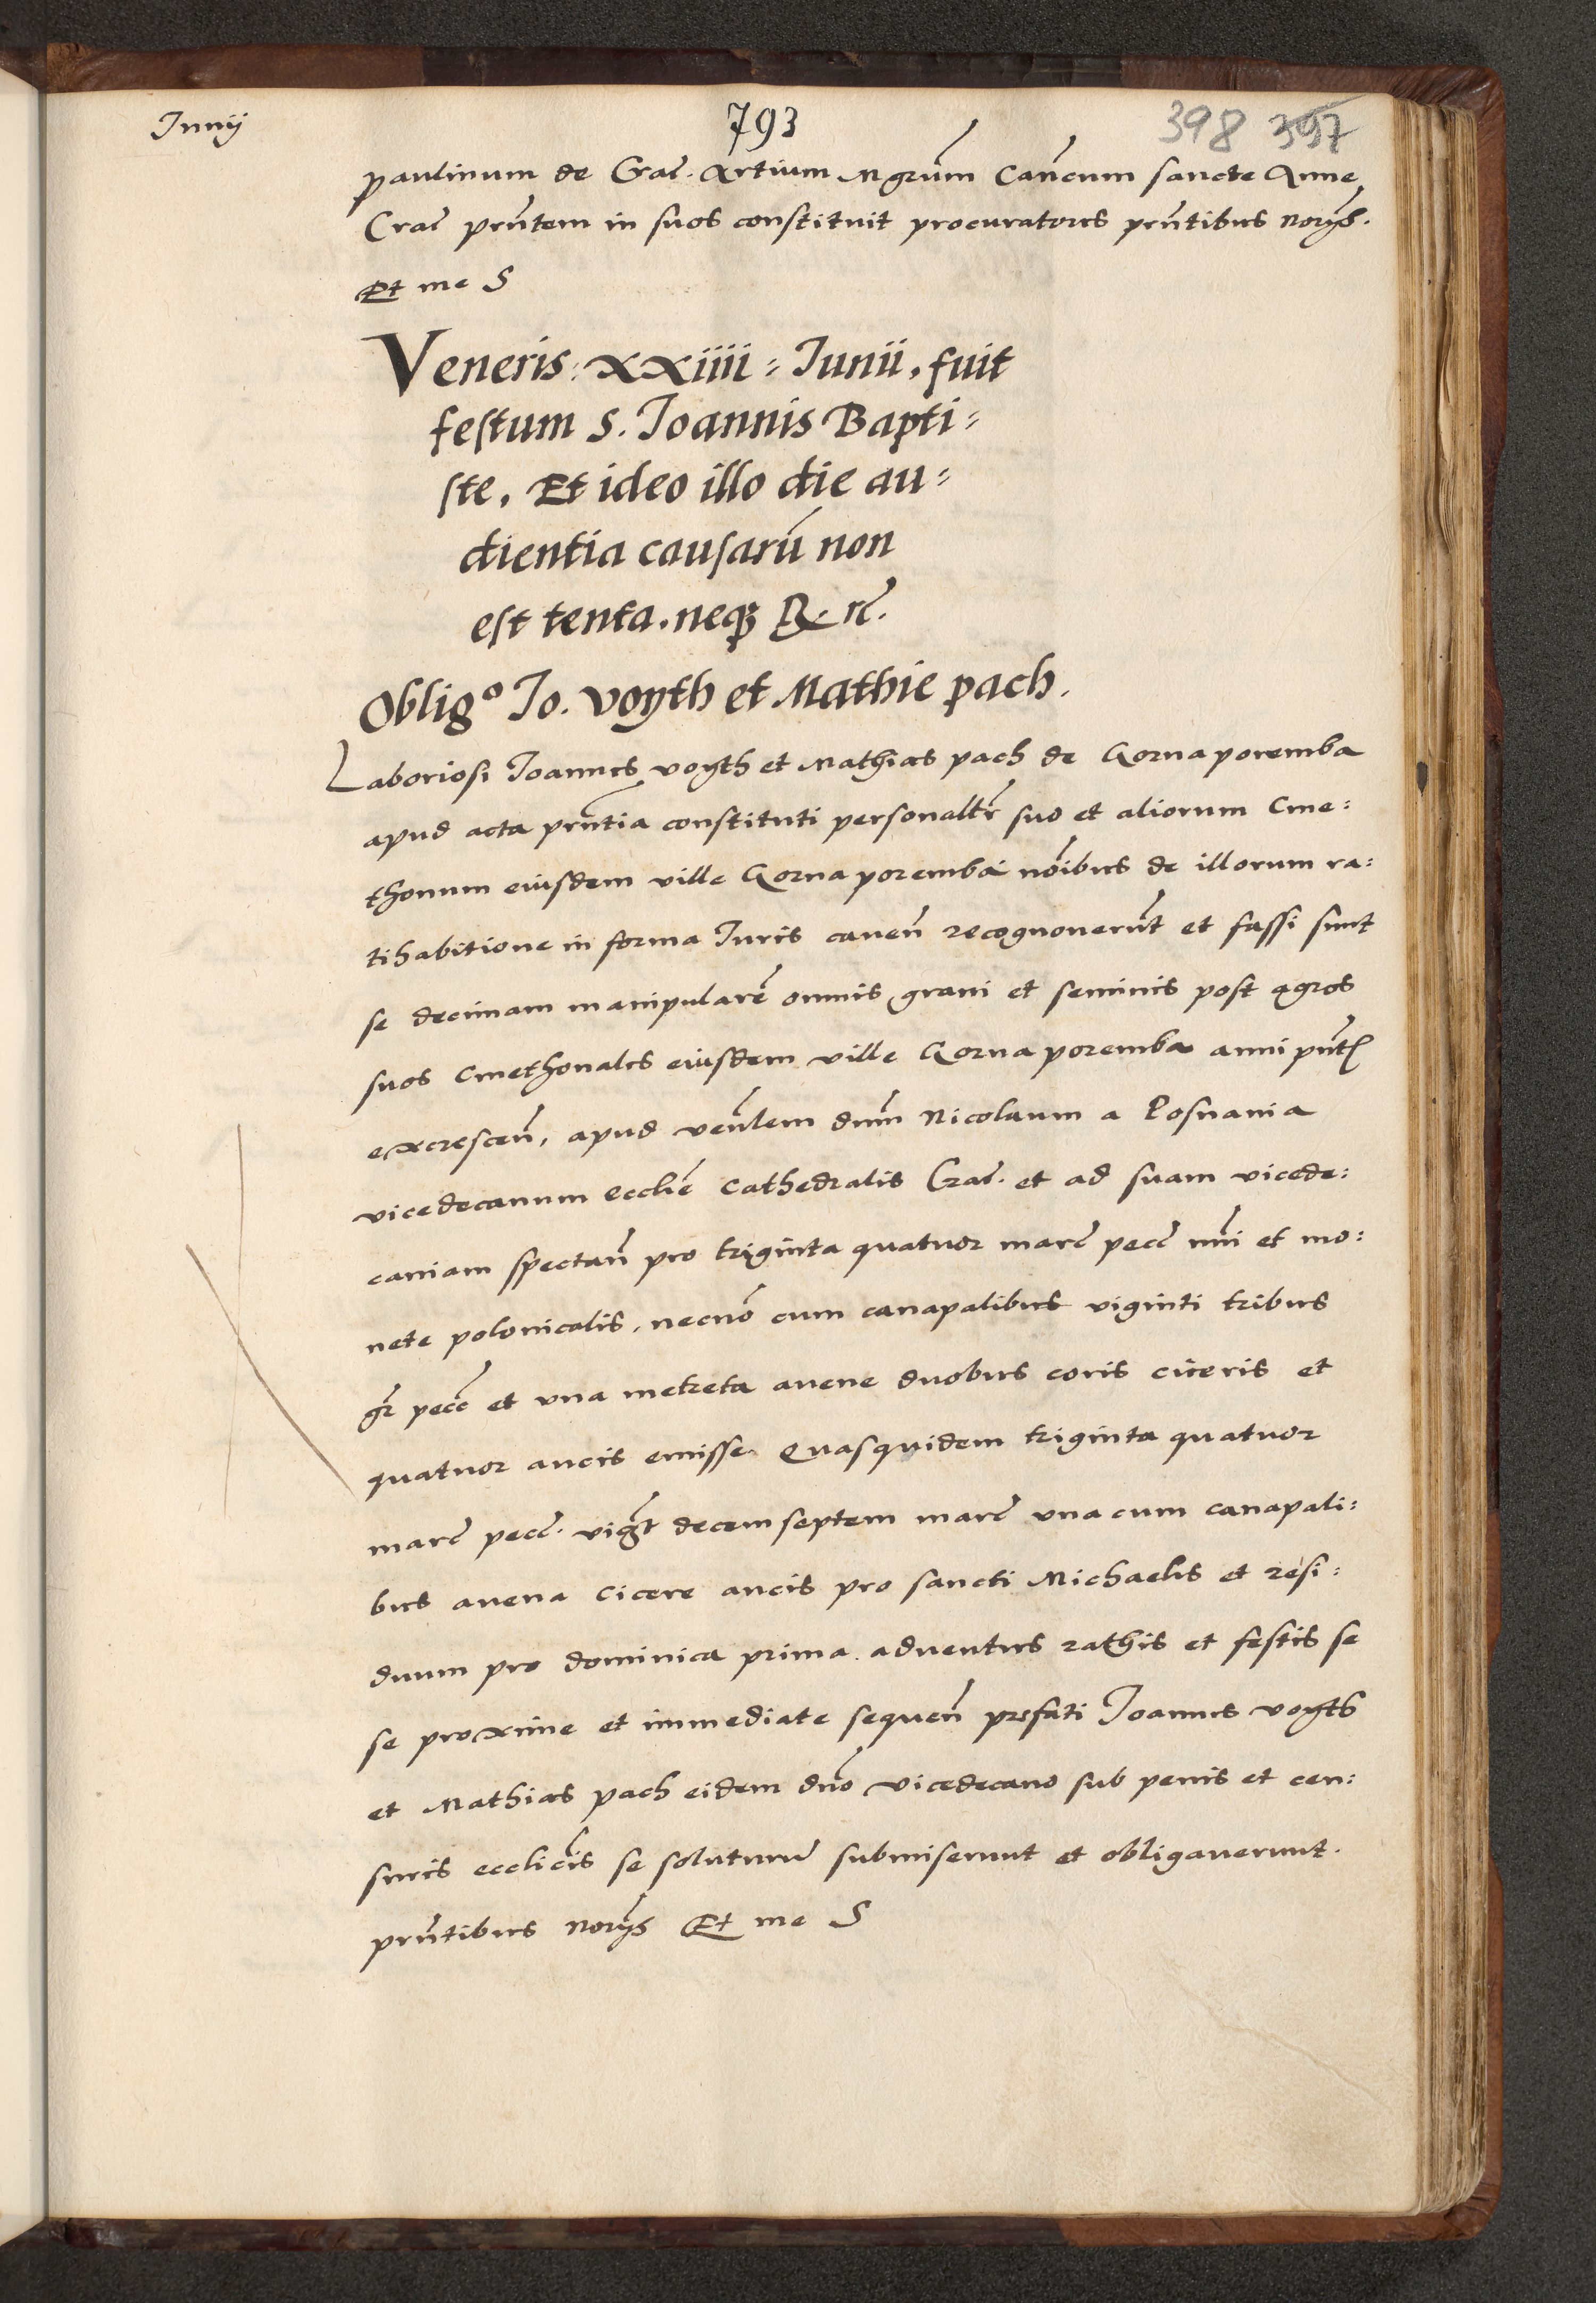 Junij
793
398 397
paulinum de Crac̄. Artium Mgrūm Cañcum sancte Anne
Crac̄ prñtem in suos constituit procuratores prñtibus Norijs.
Et me S
Veneris: xxiiii = Junii, fuit
festum S. Joannis Bapti=
ste, Et ideo illo die au=
dientia causarū non
est tenta. neqꝫ
Obligº Jo. voyth et Mathie pach.
Laboriosi Joannes voyth et Mathias pach de Gorna poremba
apud acta prñtia constituti personaltr̄ suo et aliorum Cme:
thonum eiusdem ville Gorna poremba nōibus de illorum ra:
tihabitione in forma Juris caveñ recognoverūt et fassi sunt
se decimam manipularē omnis grani et seminis post agros
suos Cmethonales eiusdem ville Gorna poremba anni pñtꝭ
excresceñ, apud veñlem dnm̄ Nicolaum a Posnania
vicedecanum ecclīe Cathedralis Crac̄. et ad suam vicede:
caniam spectañ pro triginta quatuor marc̄ pecc̄ nri̅ et mo:
nete polonicalis, necnō cum canapalibus viginti tribus
gr̄ pecc̄ et una metreta avene duobus coris ciceris et
quatuor aucis emisse. Quasquidem triginta quatuor
marc̄ pecc̄. vigr̄t decem septem marc̄ una cum canapali:
bus avena cicere aucis pro sancti Michaelis et resi:
duum pro dominica prima adventus rathis et festis se
se proxime et immediate sequeñ prefati Joannes voyth
et Mathias pach eidem dnō vicedecano sub penis et cen:
suris ecclicīs se soluturus submiserunt et obligaverunt.
prñtibus Norijs Et me S